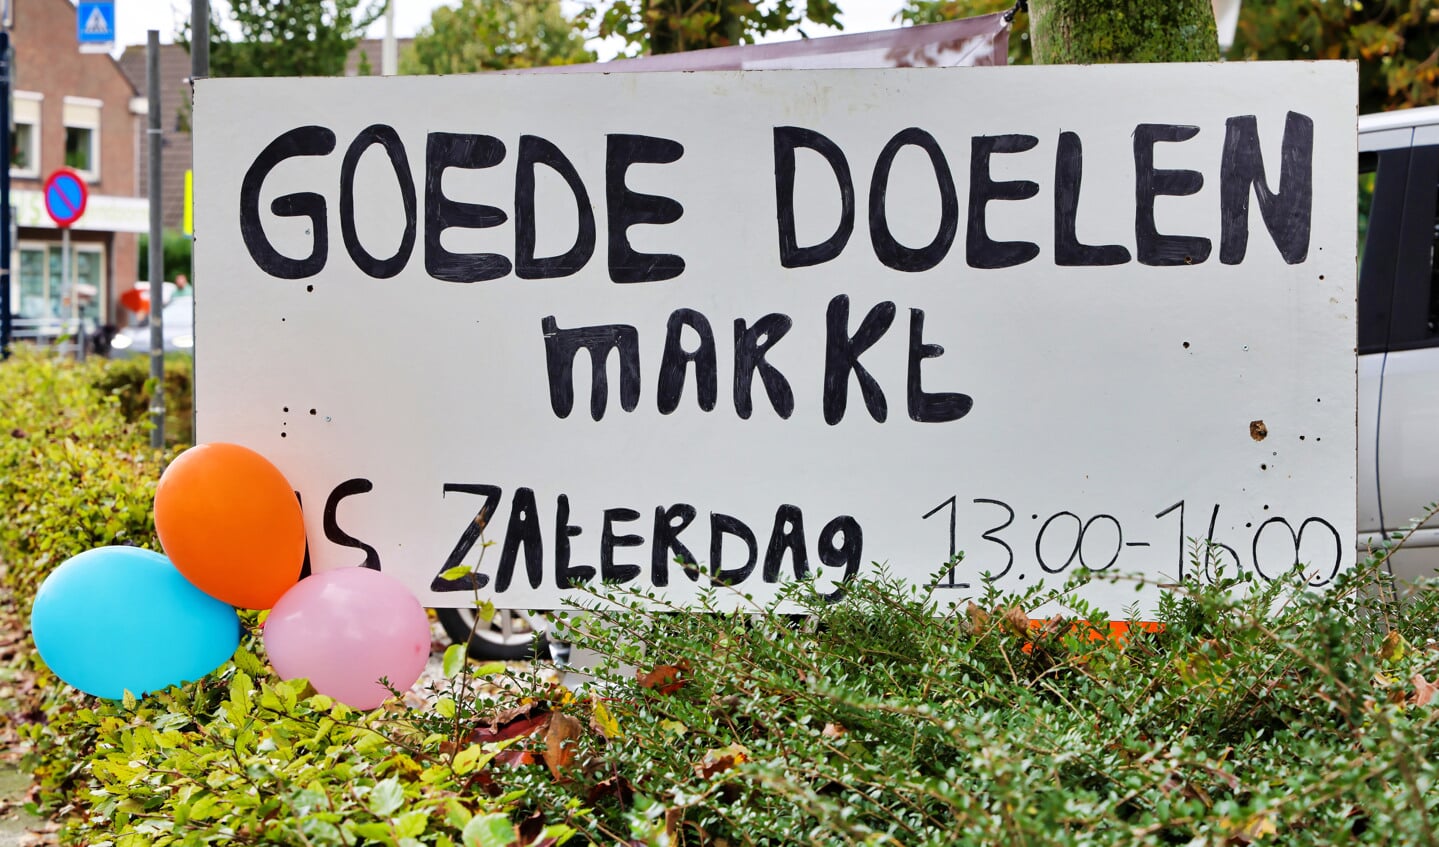 GOEDE DOELEN
mARKt
ZAtERDAg 13:00-16:00